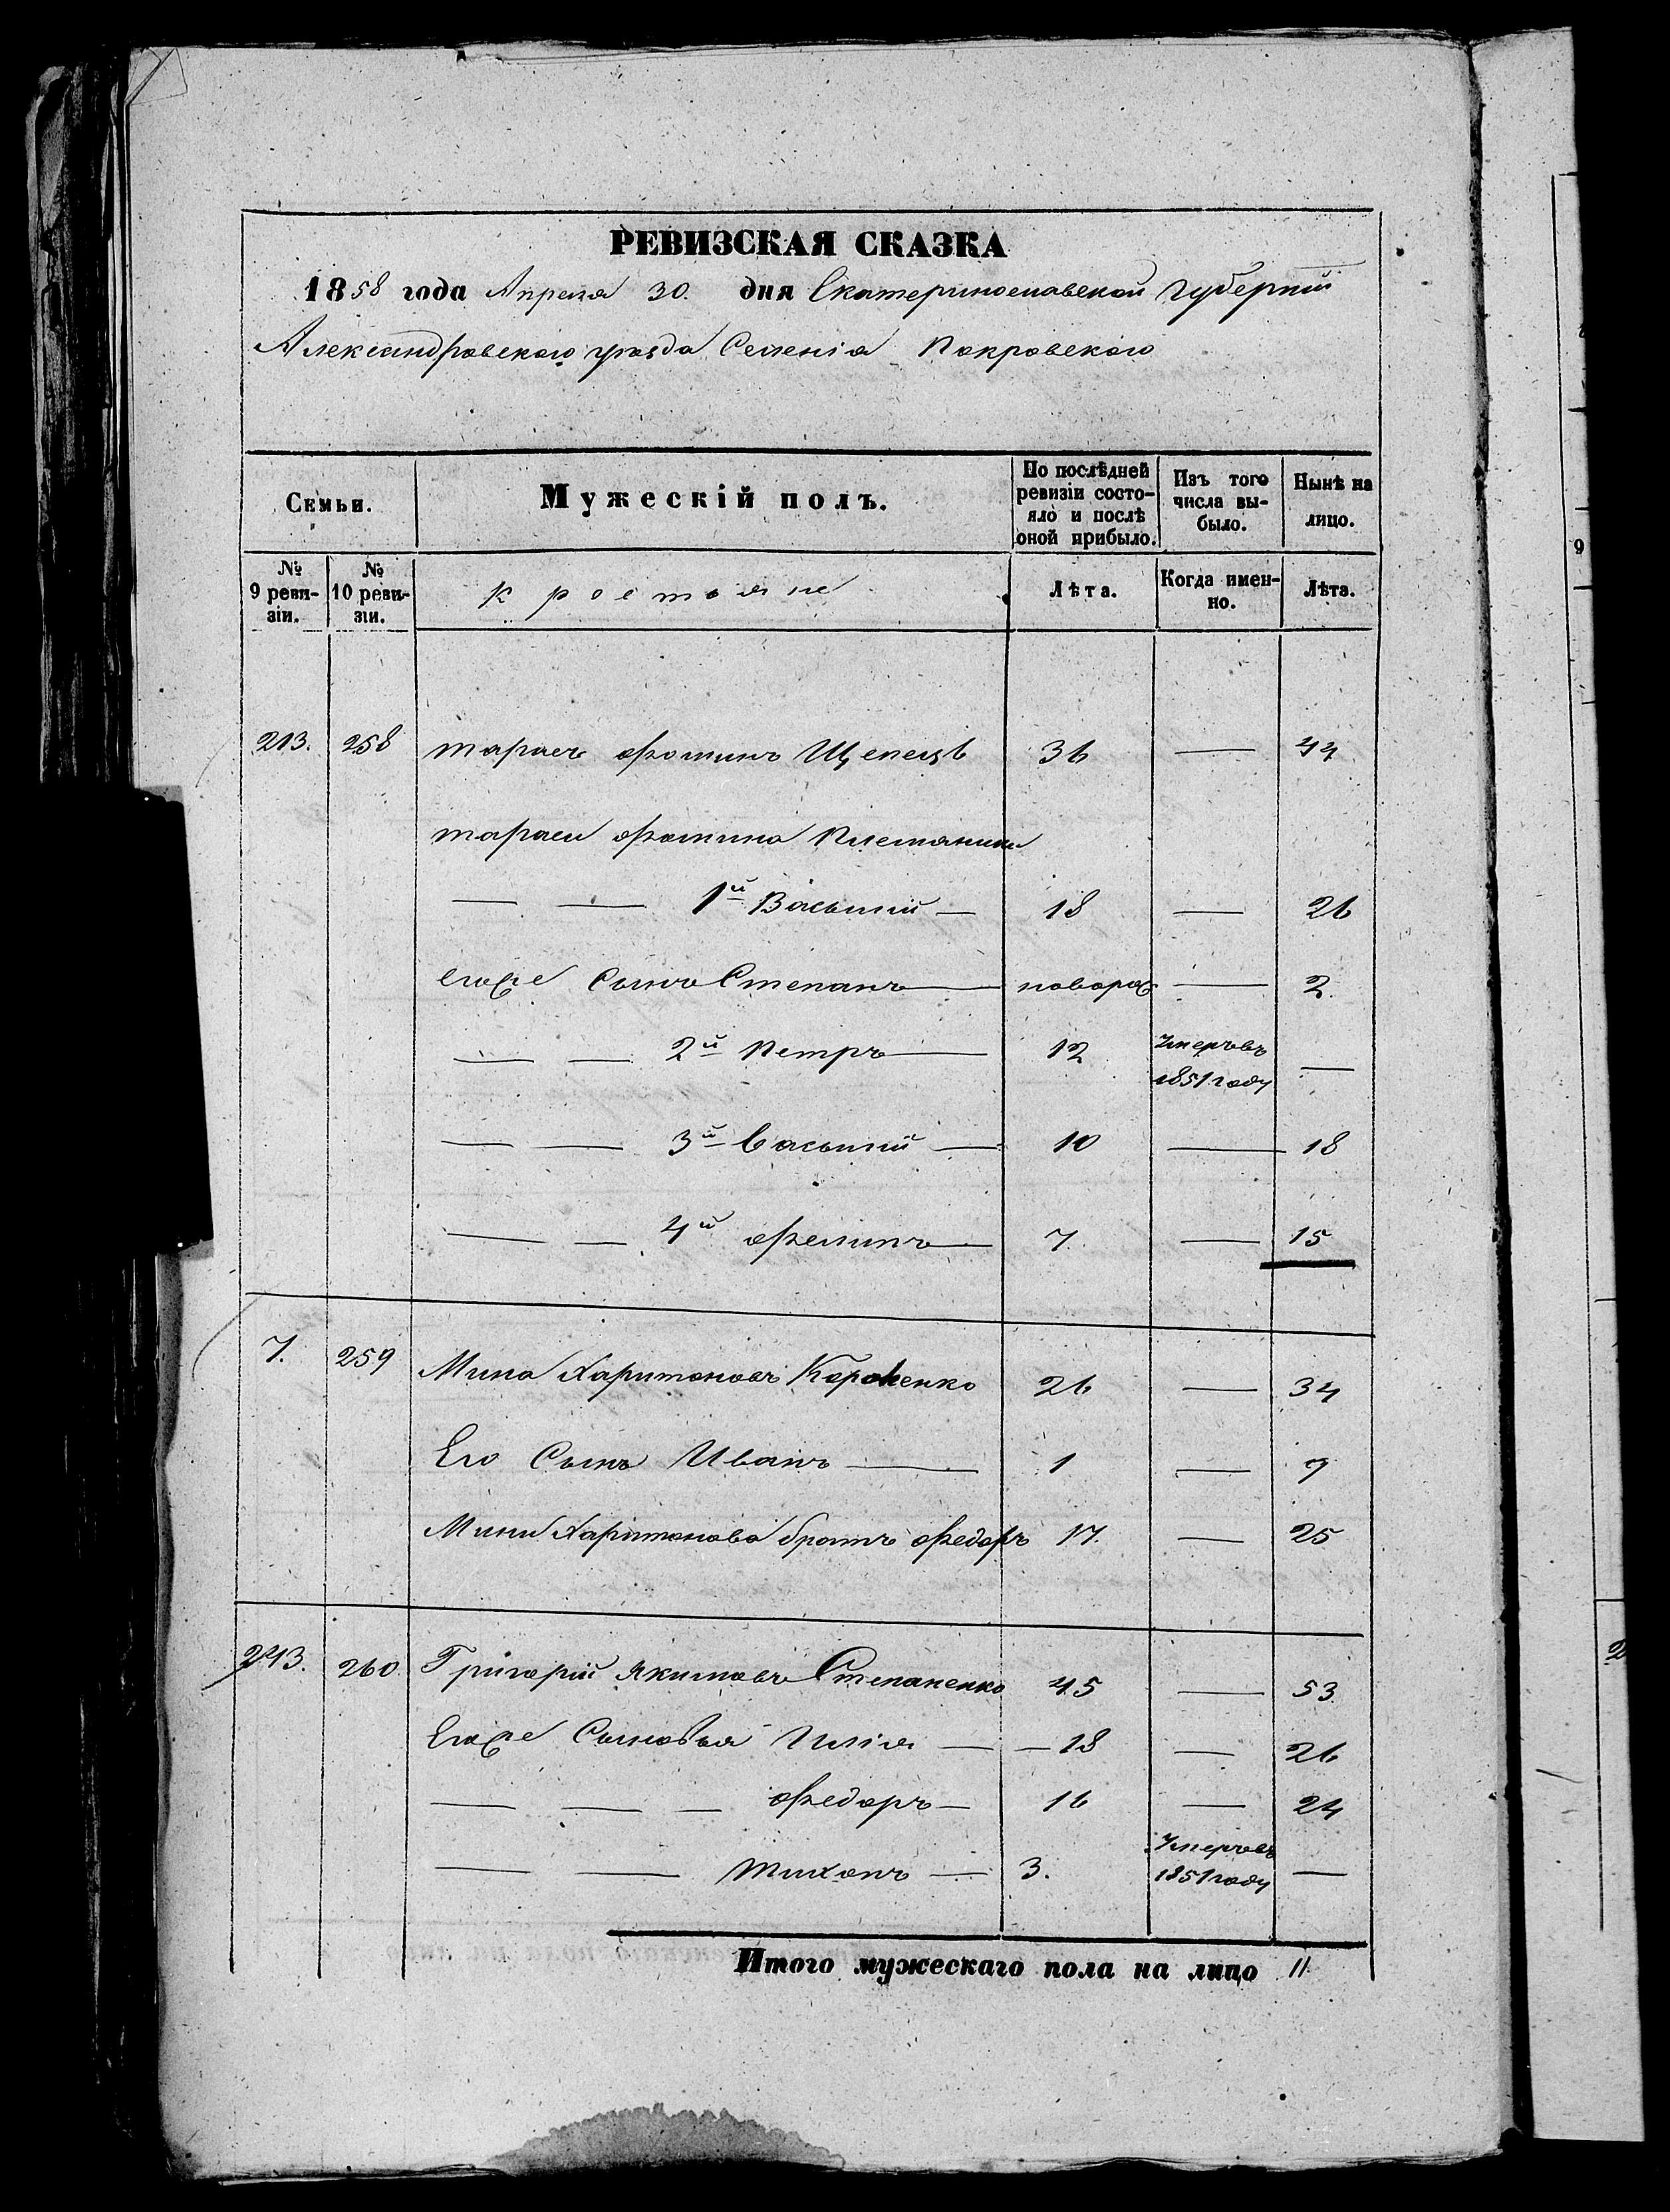 РЕВИЗСКАЯ СКАЗКА
1858 года Апреля 30. дня Екатеринославской губерніи
Александровского уезда Селенія Покровского
Семьи.
Мужескій полъ.
По послѣдней ревизіи состояло и послѣ оной прибыло.
Изъ того числа выбыло.
Нынѣ на лицо.
№ 9 ревизіи.
№ 10 ревизіи.
крестояне
Лѣта.
Когда именно.
Лѣта.
213. 258 тарасъ фоминъ Щепецъ 36 — 44
тараси фомина племяники
— — 1й Васылий — 18 — 26
егоже Сынъ Степанъ — новорож — 2.
— — 2й Петръ — 12 Умеръ въ 1851 году —
— — 3й Васылий — 10 — 18
— — 4й филипъ — 7. — 15
7. 259 Мина Харитоновъ Короленко 26 — 34
Его Сынъ Иванъ — 1 — 9
Мины Харитонова братъ федоръ 17. — 25
243. 260. Григорий Якимовъ Степаненко 45 — 53.
Егоже Сыновья Илія — — 18 — 26
— — — федоръ — 16 — 24
— — тихонъ — 3. Умеръ въ 1851 году —
Итого мужескаго пола на лицо 11
9
2